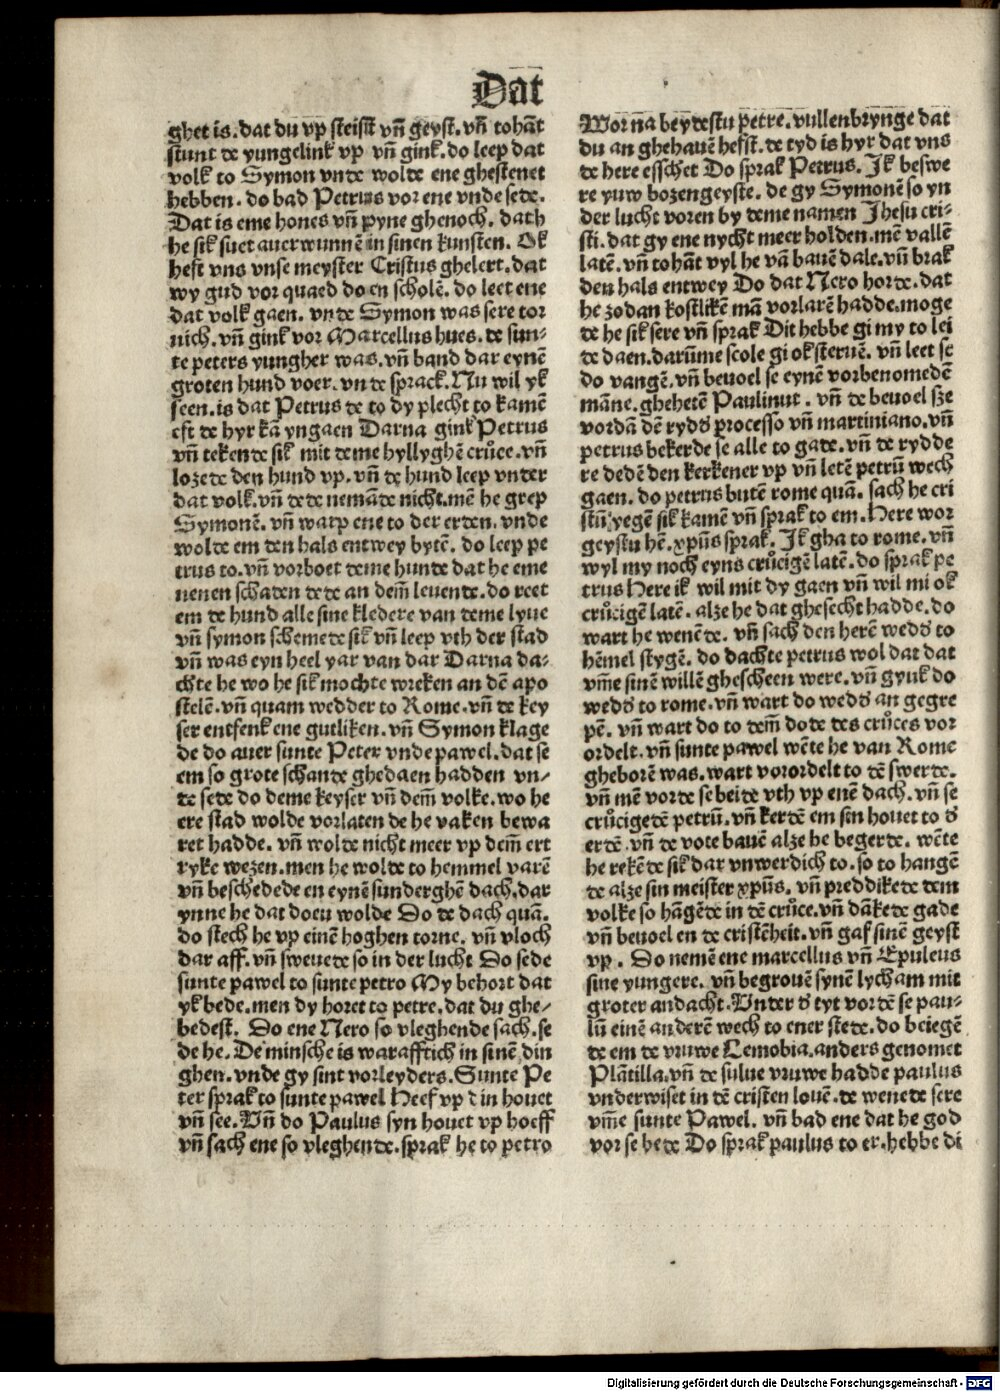 Dat
ghet is. dat du vp steisst vn̄ geyst. vn̄ tohāt
stunt de yungelink vp vn̄ gink. do leep dat
volk to Symon vnde wolde ene ghestenet
hebben. do bad Petrus vor ene vnde sede.
Dat is eme hones vn̄ pyne ghenoch. dath
he sik suet auerwunnē in sinen kunsten. Ok
heft vns vnse meyster Cristus ghelert. dat
wy gud vor quaed doen scholē. do leet ene
dat volk gaen. vnde Symon was sere tor
nich. vn̄ gink vor Marcellus hues. de sun-
te peters yungher was. vn̄ band dar eynē
groten hund voer. vnde sprack. Nu wil yk
seen. is dat Petrus de to dy plecht to kamē
eft de hyr kā yngaen Darna gink Petrus
vn̄ tekende sik mit deme hyllyghē crůce. vn̄
lozede den hund vp. vn̄ de hund leep vnder
dat volk. vn̄ dede nemāde nicht. mē he grep
Symonē. vn̄ warp ene to der erden. vnde
wolde em den hals entwey bytē. do leep pe
trus to. vn̄ vorboet deme hunde dat he eme
nenen schaden dede an dem̄ leuende. do reet
em de hund alle sine kledere van deme lyue
vn̄ symon schemede sik vn̄ leep vth der stad
vn̄ was eyn heel yar van dar Darna da-
chte he wo he sik mochte wreken an dē apo
stelē. vn̄ quam wedder to Rome. vn̄ de key
ser entfenk ene gutliken. vn̄ Symon klage
de do auer sunte Peter vnde pawel. dat se
em so grote schande ghedaen hadden vn-
de sede do deme keyser vn̄ dem̄ volke. wo he
ere stad wolde vorlaten de he vaken bewa
ret hadde. vn̄ wolde nicht meer vp dem̄ ert
ryke wezen. men he wolde to hemmel varē
vn̄ beschedede en eynē sunderghē dach. dar
ynne he dat doen wolde Do de dach quā.
do stech he vp einē hoghen torne. vn̄ vloch
dar aff. vn̄ sweuede so in der lucht Do sede
sunte pawel to sunte petro My behort dat
yk bede. men dy horet to petre. dat du ghe-
bedest. Do ene Nero so vleghende sach. se
de he. De minsche is warafftich in sinē din
ghen. vnde gy sint vorleyders. Sunte Pe
ter sprak to sunte pawel Heef vp din houet
vn̄ see. Vn̄ do Paulus syn houet vp hoeff
vn̄ sach ene so vleghende. sprak he to petro
Wor na beydestu petre. vullenbrynge dat
du an ghehauē hefst. de tyd is hyr dat vns
de here esschet Do sprak Petrus. Jk beswe
re yuw bozengeyste. de gy Symonē so yn
der lucht voren by deme namen Jhesu cri-
sti. dat gy ene nycht meer holden. mē vallē
latē. vn̄ tohāt vyl he vā bauē dale. vn̄ brak
den hals entwey Do dat Nero horde. dat
he zodan kostlikē mā vorlarē hadde. moge
de he sik sere vn̄ sprak Dit hebbe gi my to lei
de daen. darūme scole gi ok steruē. vn̄ leet se
do vangē. vn̄ beuoel se eynē vorbenomedē
māne. ghehetē Paulinut. vn̄ de beuoel sze
vordā dē rydd̄s processo vn̄ martiniano. vn̄
petrus bekerde se alle to gade. vn̄ de rydde
re dedē den kerkener vp vn̄ letē petrū wech
gaen. do petrus butē rome quā. sach he cri
stū yegē sik kamē vn̄ sprak to em. Here wor
geystu hē. xp̄us sprak. Jk gha to rome. vn̄
wyl my noch eyns crůcigē latē. do sprak pe
trus Here ik wil mit dy gaen vn̄ wil mi ok
crůcigē latē. alze he dat ghesecht hadde. do
wart he wenēde. vn̄ sach den herē wedd̄ to
hēmel stygē. do dachte petrus wol dat dat
vm̄e sinē willē ghescheen were. vn̄ gynk do
wedd̄ to rome. vn̄ wart do wedd̄ an gegre
pē. vn̄ wart do to dem̄ dode des crůces vor
ordelt. vn̄ sunte pawel wēte he van Rome
gheborē was. wart vorordelt to dē swerde.
vn̄ mē vorde se beide vth vp enē dach. vn̄ se
crůcigedē petrū. vn̄ kerdē em sin houet to d̄
erdē. vn̄ de vote bauē alze he begerde. wēte
he rekēde sik dar vnwerdich to. so to hangē
de alze sin meister xp̄us. vn̄ preddikede dem
volke so hāgēde in dē crůce. vn̄ dākede gade
vn̄ beuoel en de cristēheit. vn̄ gaf sinē geyst
vp. Do nemē ene marcellus vn̄ Epuleus
sine yungere. vn̄ begrouē synē lycham mit
groter andacht. Vnder d̄ tyt vordē se pau-
lū einē anderē wech to ener stede. do beiegē
de em de vruwe Lemobia. anders genomet
Plātilla. vn̄ de sulue vruwe hadde paulus
vnderwiset in dē cristen louē. de wenede sere
vm̄e sunte Pawel. vn̄ bad ene dat he god
vor se bede Do sprak paulus to er. hebbe di
Digitalisierung gefördert durch die Deutsche Forschungsgemeinschaft - DFG